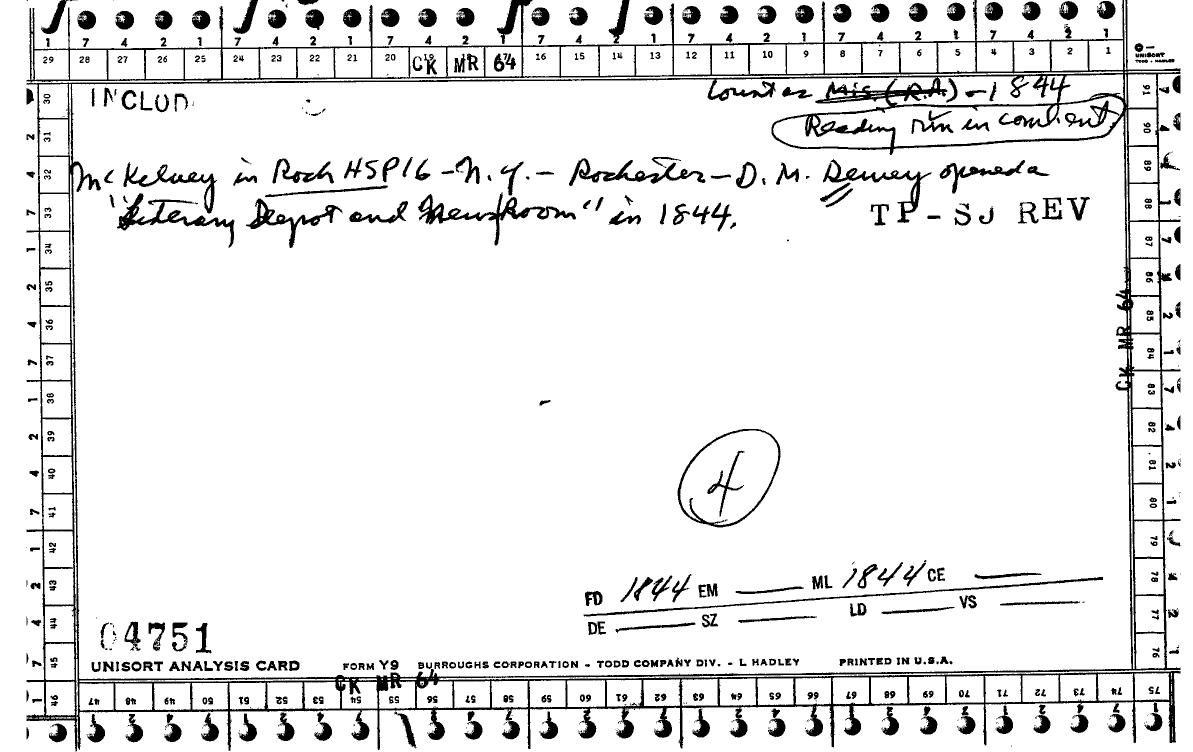 1 7 4 2 1 7 4 2 1 7 4 2 1 7 4 2 1 7 4 2 1 7 4 2 1 7 4 2 1
29 28 27 26 25 24 23 22 21 20 CK MR 64 16 15 14 13 12 11 10 9 8 7 6 5 4 3 2 1
UNISORT
TODD - HADLEY
INCLUD
Count as Mis. (R.A.) - 1844
Reading rm in comment.
McKelvey in Roch HSP16 - N.Y. - Rochester - D. M. Dewey opened a
"Literary Depot and News Room" in 1844.
TP - SJ REV
CK MR 64
4
FD 1844 EM ML 1844 CE
DE SZ LD VS
04751
UNISORT ANALYSIS CARD FORM Y9 BURROUGHS CORPORATION - TODD COMPANY DIV. - L HADLEY PRINTED IN U.S.A.
CK MR 64
30 31 32 33 34 35 36 37 38 39 40 41 42 43 44 45 46
47 48 49 50 51 52 53 54 55 56 57 58 59 60 61 62 63 64 65 66 67 68 69 70 71 72 73 74 75
76 77 78 79 80 81 82 83 84 85 86 87 88 89 90 91